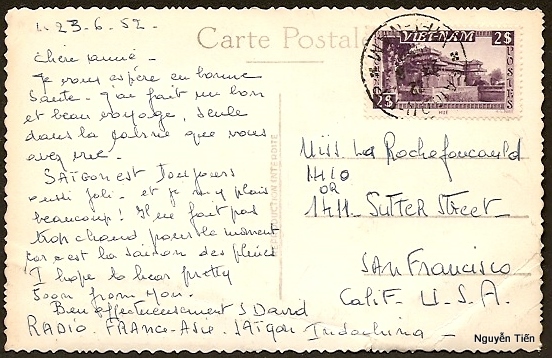 23.6.52-
Carte Postale
VIET-NAM
2$
POSTES
2$
Chère amie-
Je vous espère en bonne
santé- J'ai fait un bon
et beau voyage, seule
dans la que vous
avez vue.
SAÏGON est Toujours
aussi joli- et je m'y plais
beaucoup! Il ne fait pas
trop chaud, pour le moment
car c'est la saison des pluies
I hope to hear pretty
soon from you.
Bien affectueusement S David
RADIO. FRANCE-ASIE. SAÏGON Indochina-
REPRODUCTION INTERDITE
Miss La Rochefoucauld
1410
OR
1411- SUTTER STREET-
SAN Francisco
CALIF- U.S.A.
Nguyễn Tiến